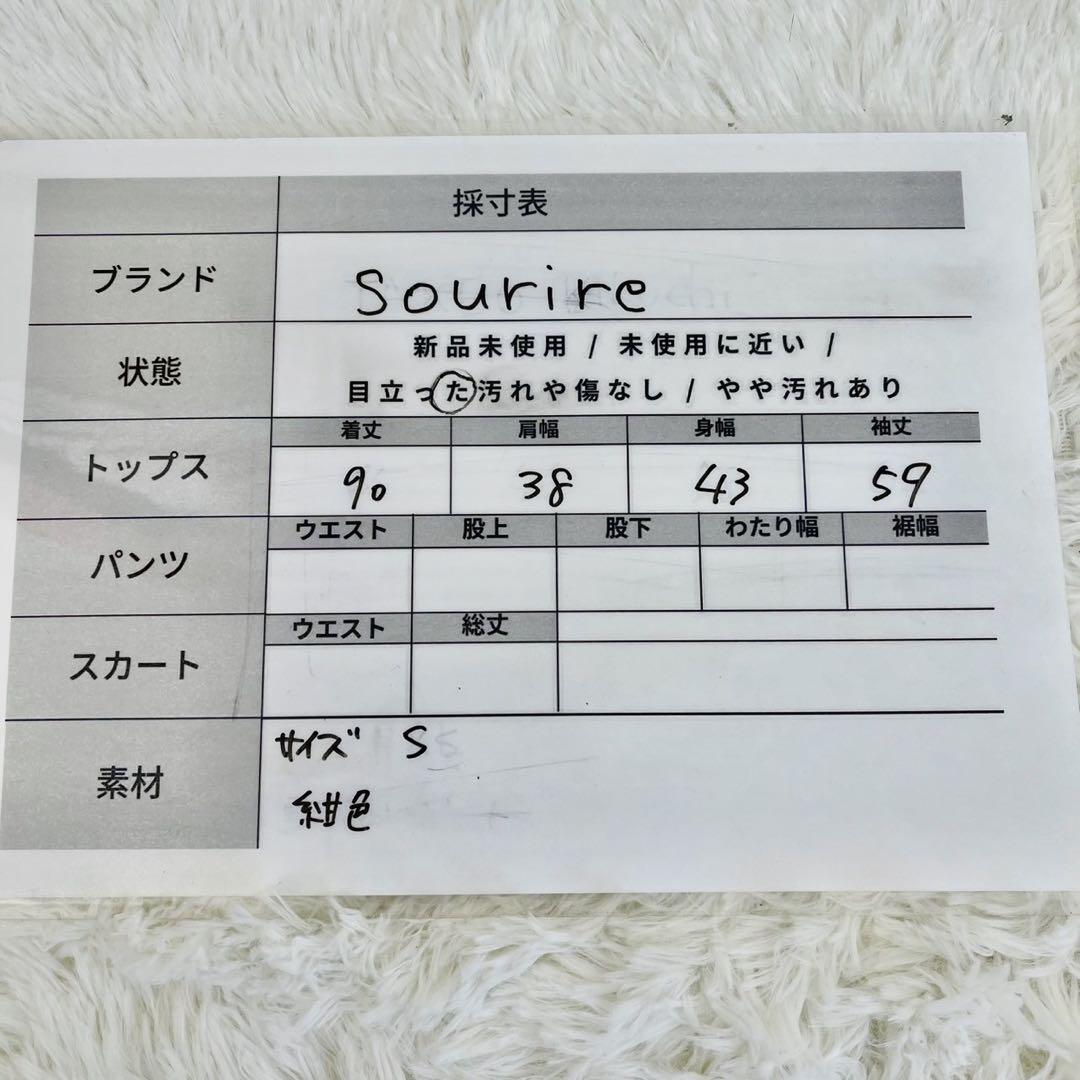 採寸表
ブランド sourire
状態 新品未使用 / 未使用に近い /
目立った汚れや傷なし / やや汚れあり
トップス 着丈 肩幅 身幅 袖丈
90 38 43 59
パンツ ウエスト 股上 股下 わたり幅 裾幅
スカート ウエスト 総丈
素材 サイズ S
紺色